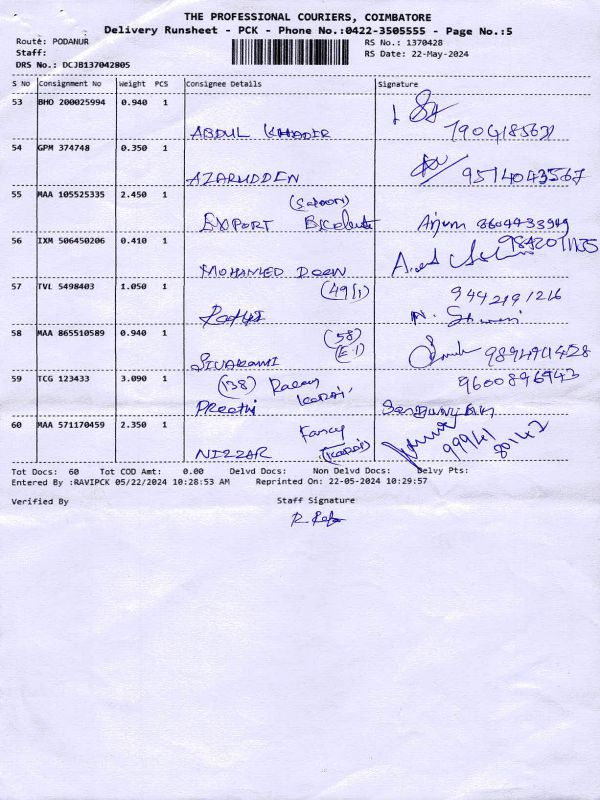 THE PROFESSIONAL COURIERS, COIMBATORE
Delivery Runsheet - PCK - Phone No.:0422-3505555 - Page No.:5
Route: PODANUR RS No.: 1370428
Staff: RS Date: 22-May-2024
DRS No.: DCJB137042805
S No Consignment No Weight PCS Consignee Details Signature
53 BHO 200025994 0.940 1
ABDUL KHADIR
54 GPM 374748 0.350 1
AZARUDDEN 9514043567
55 MAA 105525335 2.450 1
(Saloon)
EXPORT Arjun
56 IXM 506450206 0.410 1
MOHAMED DEEN
57 TVL 5498403 1.050 1 (49/1) 9442191216
58 MAA 865510589 0.940 1 (58)
(E-1)
SIVAKAMI
59 TCG 123433 3.090 1 (138) 9600896943
Preethi
60 MAA 571170459 2.350 1 Fancy
NIZZAR
Tot Docs: 60 Tot COD Amt: 0.00 Delvd Docs: Non Delvd Docs: Delvy Pts:
Entered By :RAVIPCK 05/22/2024 10:28:53 AM Reprinted On: 22-05-2024 10:29:57
Verified By Staff Signature